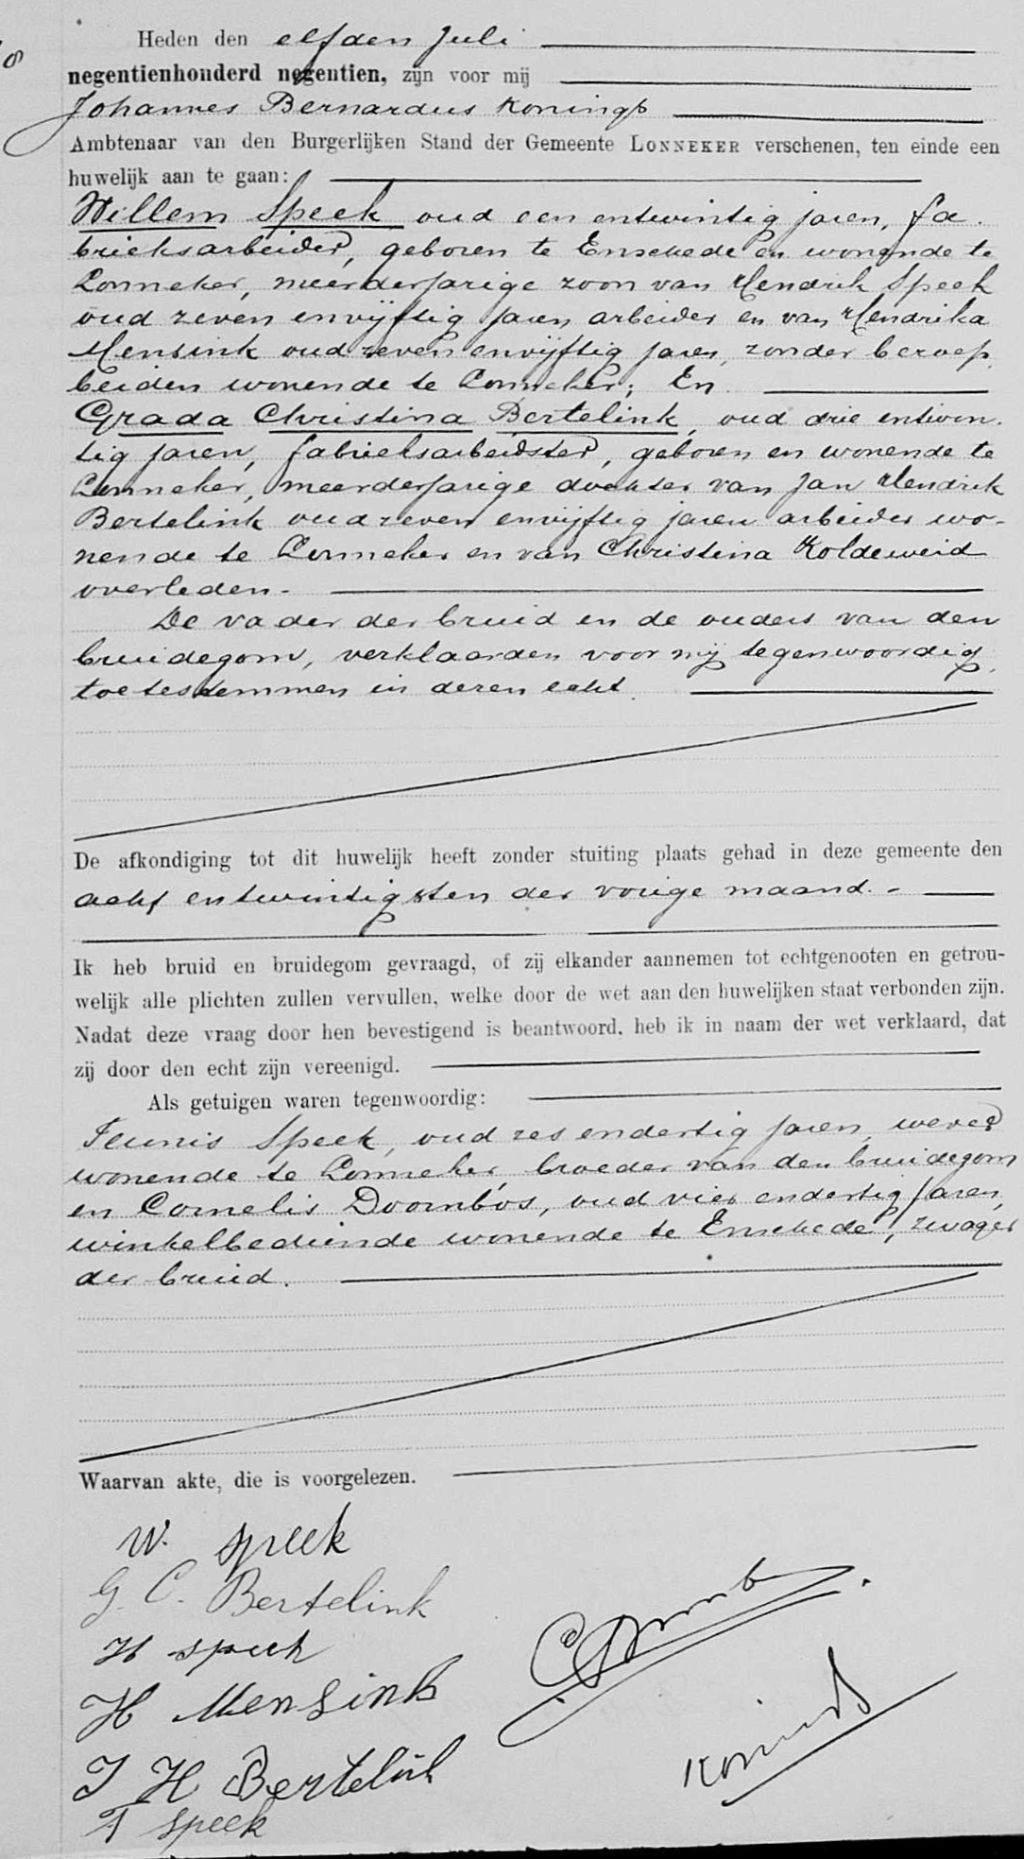 8
Heden den elfden Juli
negentienhonderd negentien, zijn voor mij
Johannes Bernardus Konings
Ambtenaar van den Burgerlijken Stand der Gemeente LONNEKER verschenen, ten einde een
huwelijk aan te gaan:
Willem Speek oud een entwintig jaren, fa.
brieksarbeider, geboren te Enschede en wonende te
Lonneker, meerderjarige zoon van Hendrik Speek
oud zeven envijftig jaren arbeider en van Hendrika
Mensink oud zeven envijftig jaren, zonder beroep,
beiden wonende te Lonneker; En
Grada Christina Bertelink, oud drie entwin.
tig jaren, fabrieksarbeidster, geboren en wonende te
Lonneker, meerderjarige dochter van Jan Hendrik
Bertelink oud zeven envijftig jaren arbeider wo-
nende te Lonneker en van Christina Koldeweid
overleden.-
De vader der bruid en de ouders van den
bruidegom, verklaarden voor mij tegenwoordig,
toetestemmen in deren echt.
De afkondiging tot dit huwelijk heeft zonder stuiting plaats gehad in deze gemeente den
acht entwintigsten der vorige maand.-
Ik heb bruid en bruidegom gevraagd, of zij elkander aannemen tot echtgenooten en getrou-
welijk alle plichten zullen vervullen, welke door de wet aan den huwelijken staat verbonden zijn.
Nadat deze vraag door hen bevestigend is beantwoord, heb ik in naam der wet verklaard, dat
zij door den echt zijn vereenigd.
Als getuigen waren tegenwoordig:
Teunis Speek, oud zes endertig jaren, wever
wonende te Lonneker, broeder van den bruidegom
en Cornelis Doornbos, oud vier endertig jaren,
winkelbediende wonende te Enschede, zwager
der bruid.
Waarvan akte, die is voorgelezen.
W. Speek
G. C. Bertelink
H Speek
H Mensink
J H Bertelink
T Speek
C Doornbos
Konings